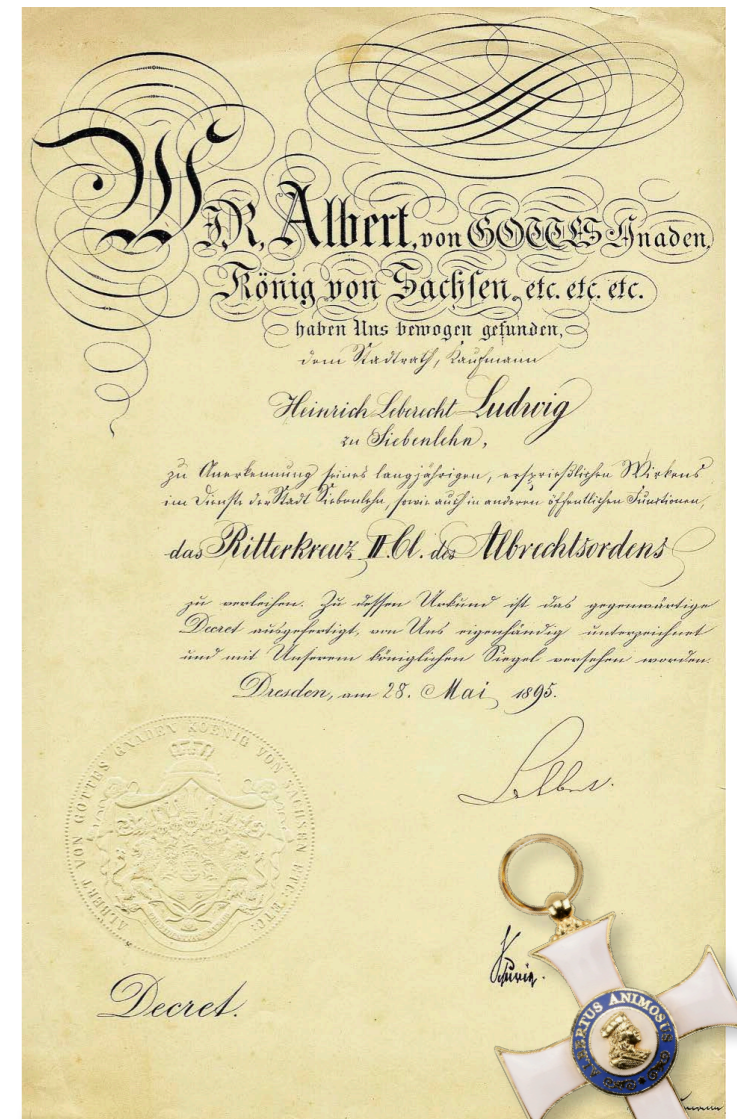 WIR, Albert, von GOTTES Gnaden,
König von Sachsen, etc. etc. etc.
haben Uns bewogen gefunden,
dem Stadtrath, Kaufmann
Heinrich Leberecht Ludwig
zu Siebenlehn,
zu Anerkennung seines langjährigen, ersprießlichen Wirkens
im Dienste der Stadt Siebenlehn, sowie auch in anderen öffentlichen Functionen,
das Ritterkreuz II. Cl. des Albrechtsordens
zu verleihen. Zu dessen Urkund ist das gegenwärtige
Decret ausgefertigt, von Uns eigenhändig unterzeichnet
und mit Unserem königlichen Siegel versehen worden.
Dresden, am 28. Mai 1895.
Albert.
ALBERT VON GOTTES GNADEN KOENIG VON SACHSEN ETC. ETC.
Decret.
ALBERTUS ANIMOSUS